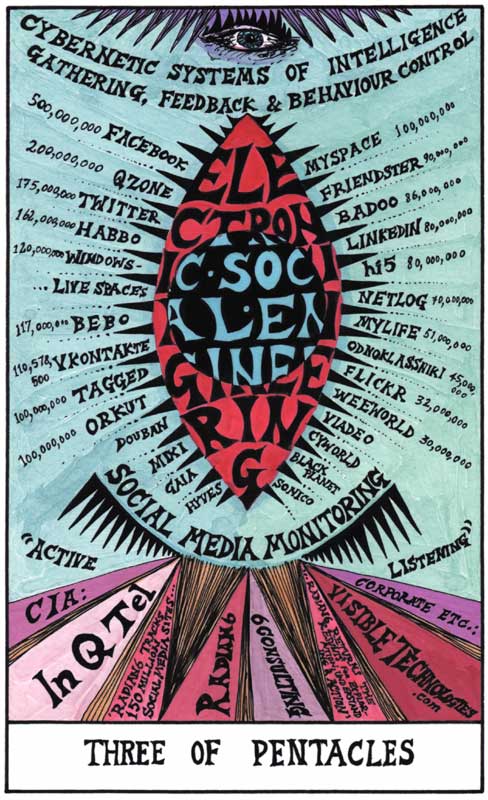 CYBERNETIC SYSTEMS OF INTELLIGENCE
GATHERING, FEEDBACK & BEHAVIOUR CONTROL
500,000,000 FACEBOOK
200,000,000 QZONE
175,000,000 TWITTER
162,000,000 HABBO
120,000,000 WINDOWS-
...LIVE SPACES
117,000,000 BEBO
110,578,500 VKONTAKTE
100,000,000 TAGGED
100,000,000 ORKUT
DOUBAN
MIXI
GAIA
HYVES
ELE
CTRONI
C·SOCI
AL·EN
GINEE
RIN
G
MYSPACE 100,000,000
FRIENDSTER 90,000,000
BADOO 86,000,000
LINKEDIN 80,000,000
hi5 80,000,000
NETLOG 70,000,000
MYLIFE 51,000,000
ODNOKLASSNIKI 45,000,000
FLICKR 32,000,000
WEEWORLD 30,000,000
VIADEO
CYWORLD
BLACK PLANET
SONICO
SOCIAL MEDIA MONITORING
"ACTIVE
LISTENING"
CIA:
In Q Tel
"RADIAN6 TRACKS
150 MILLION
SOCIAL MEDIA SITES...
RADIAN6
6CONSULTING
...RADIAN6
CORPORATE ETC.:
VISIBLE TECHNOLOGIES
.com
THREE OF PENTACLES